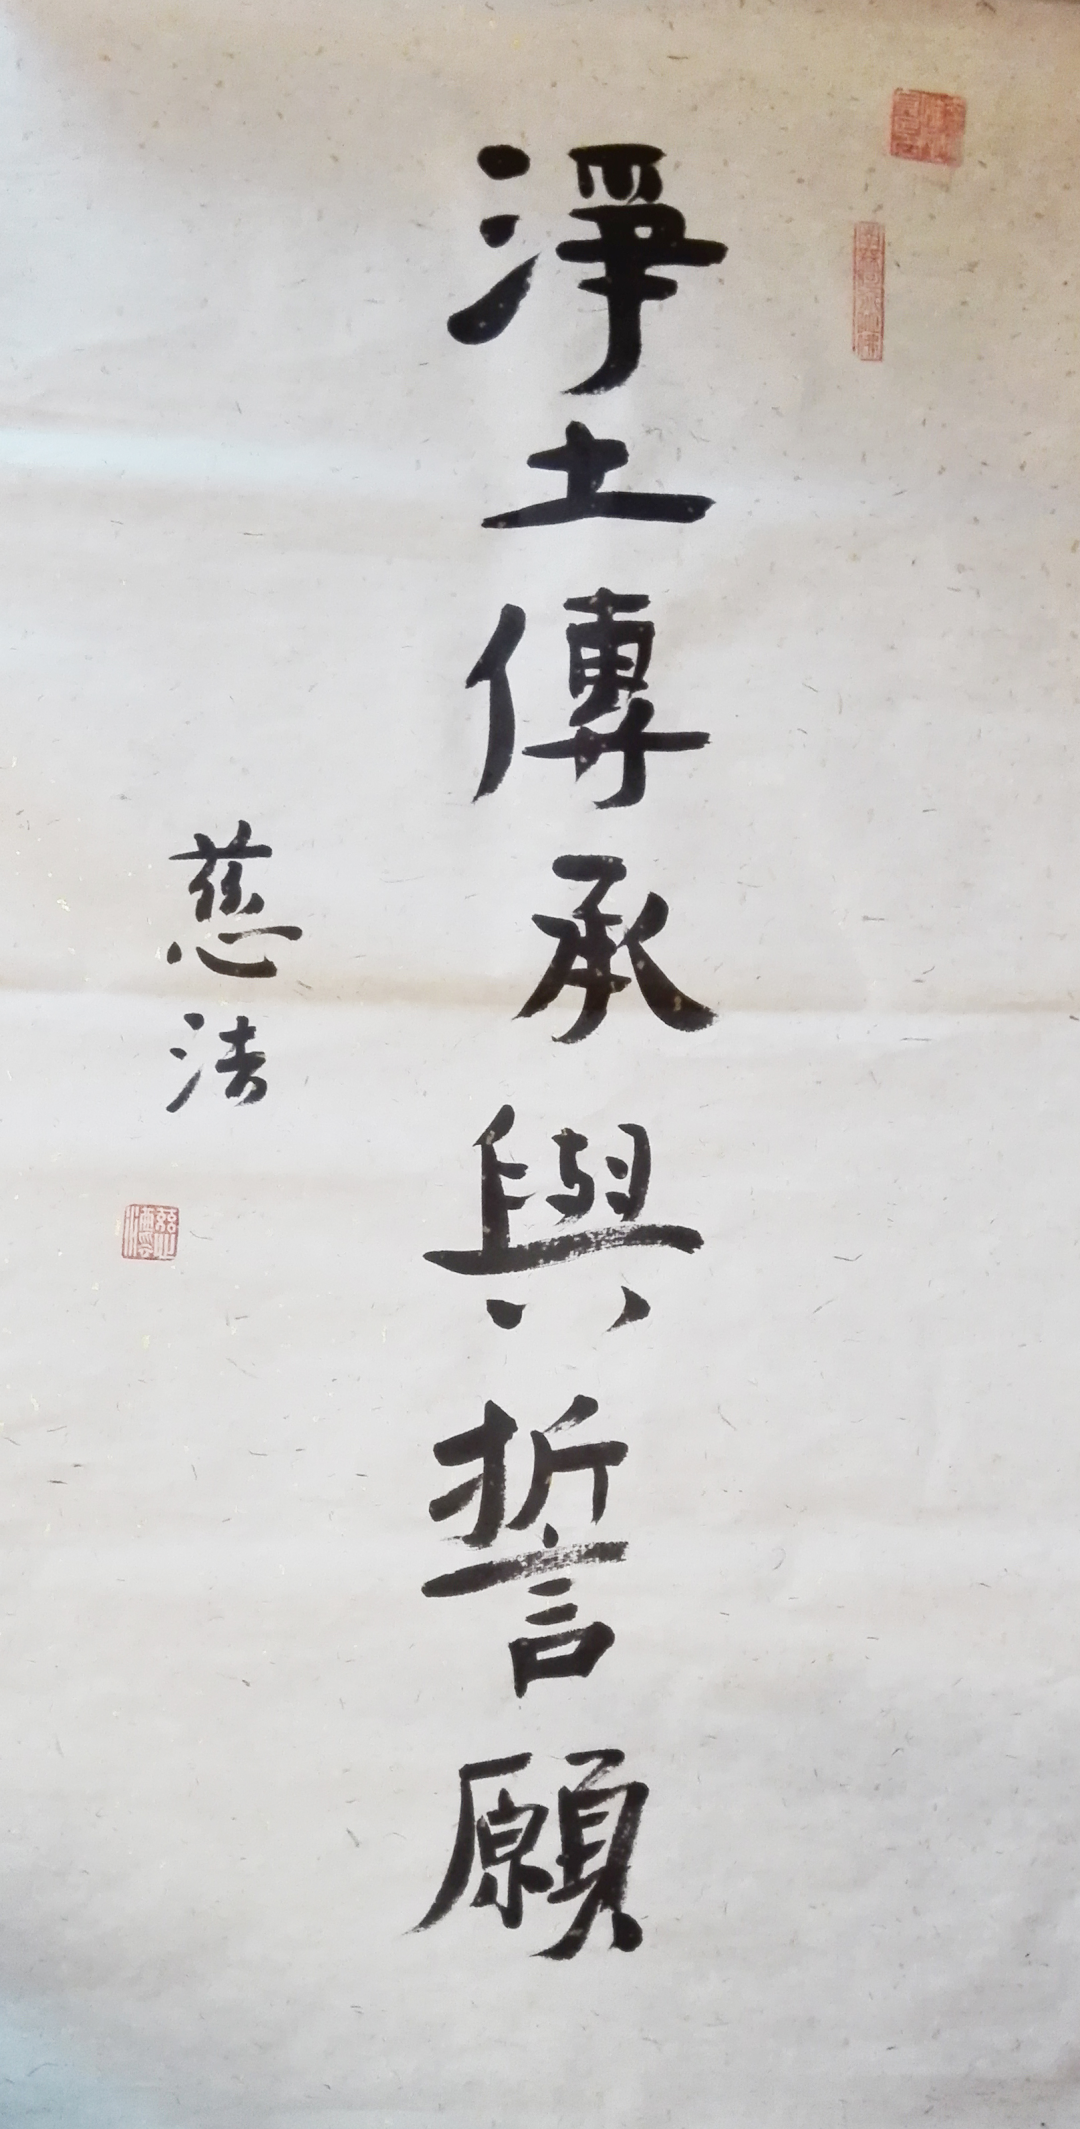 淨土傳承與誓願
慈法